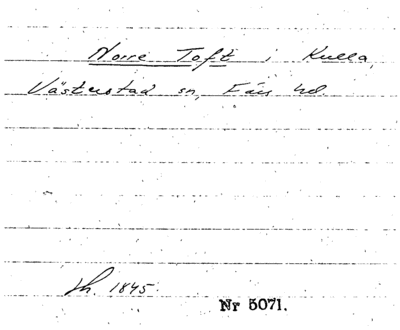 Norre Toft i Kulla,
Västerstad sn, Färs hd.
1845.
Nr 5071.